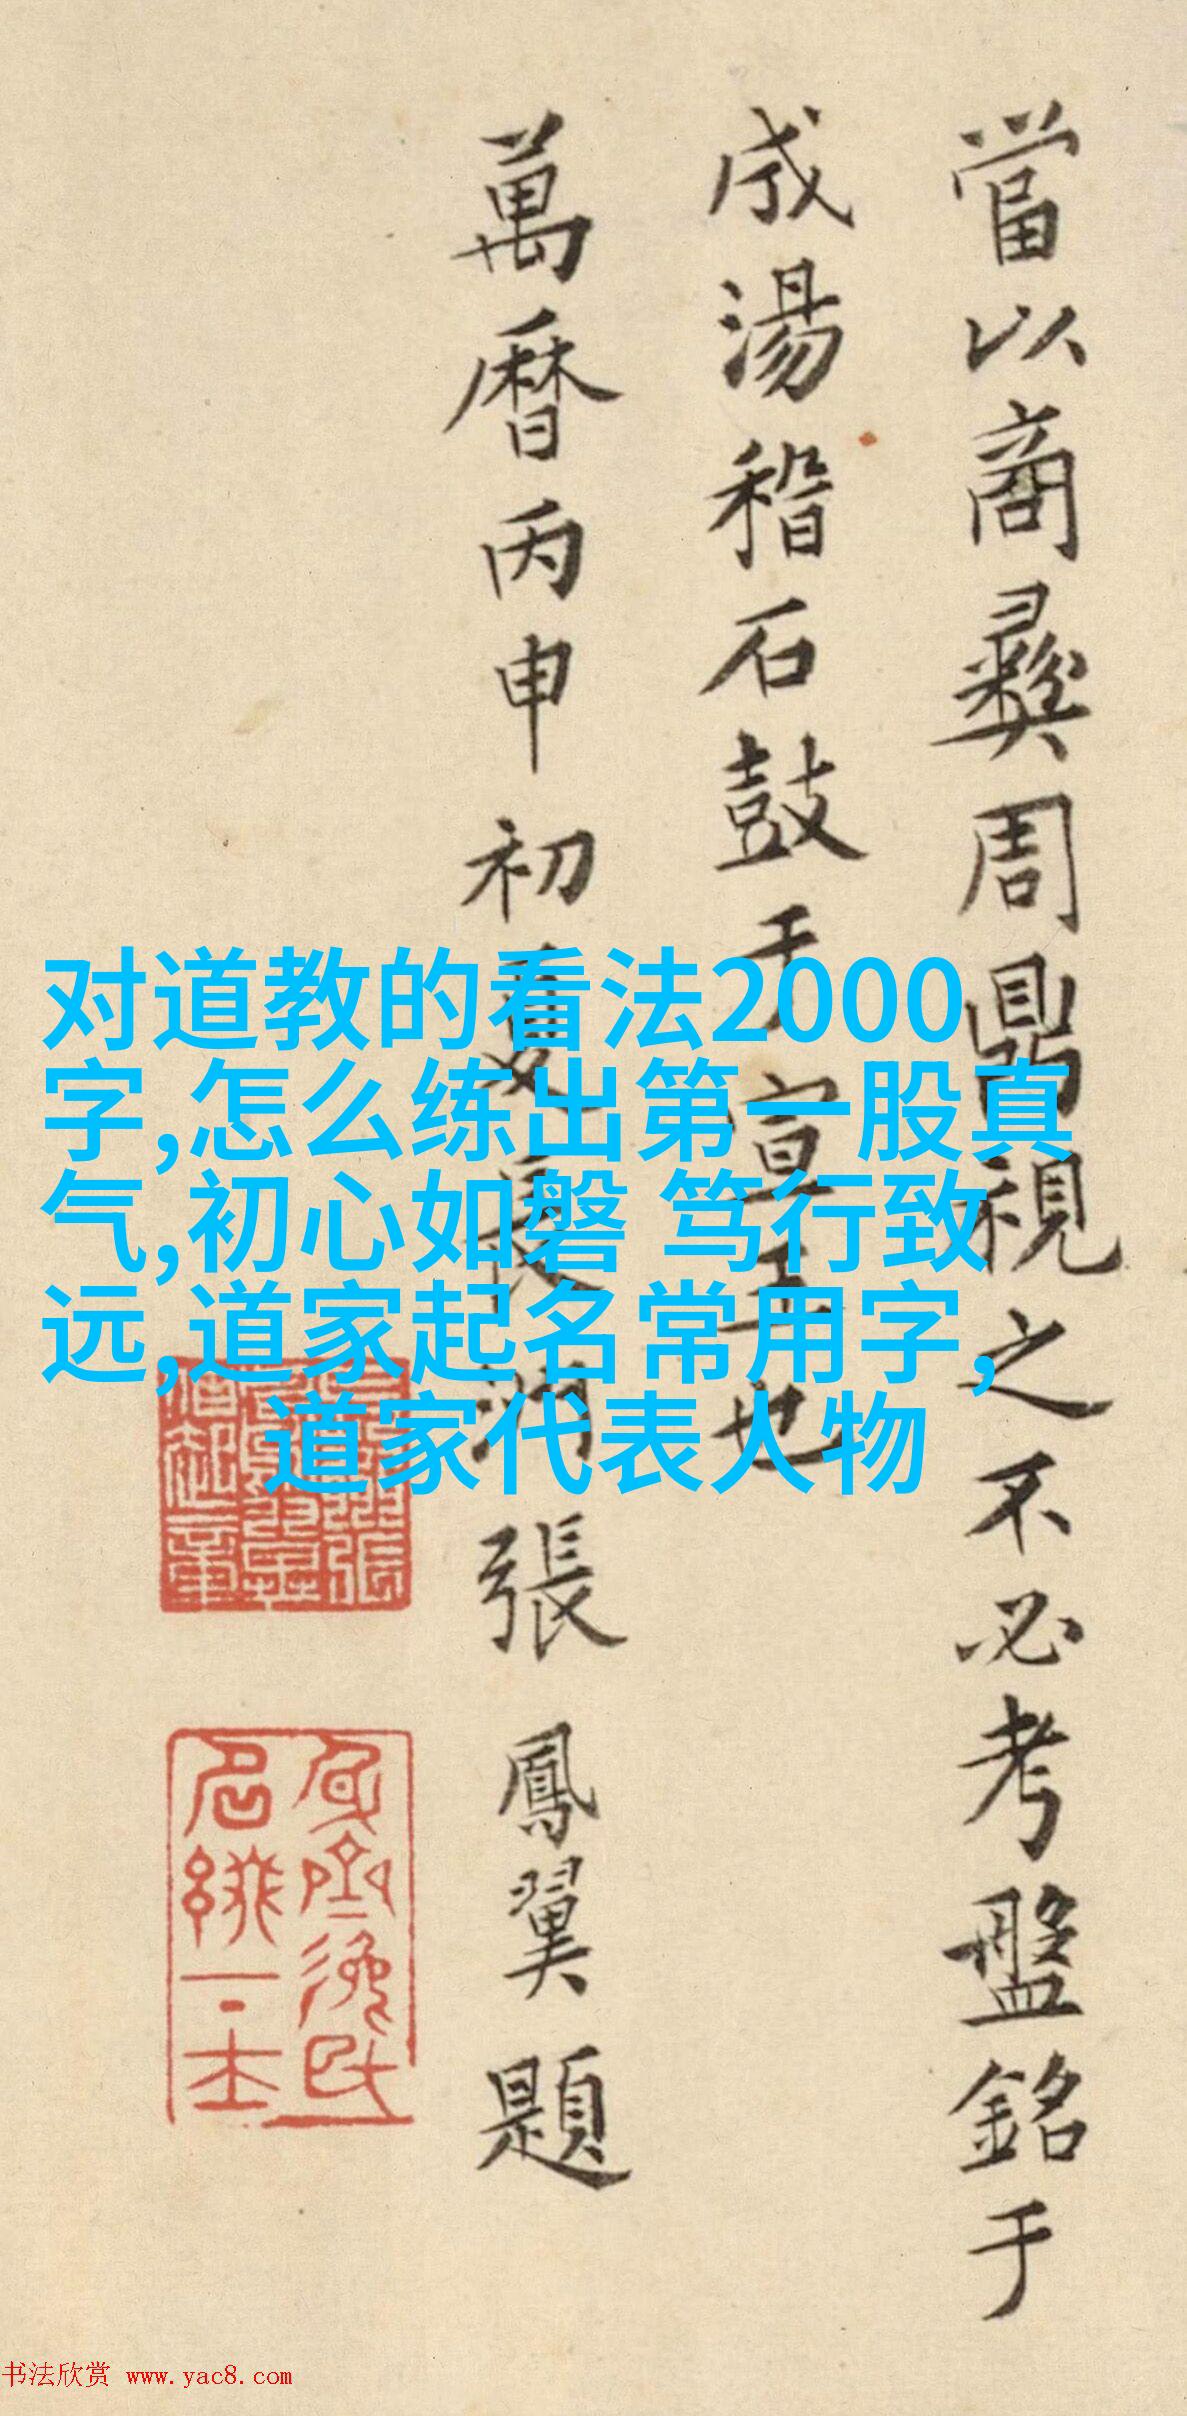 當以商彝周鼎視之不必考盤銘于
成湯稽石鼓于宣王也
萬曆丙申初夏長洲張鳳翼題
对道教的看法2000
字,怎么练出第一股真
气,初心如磐 笃行致
远,道家起名常用字,
道家代表人物
书法欣赏 www.yac8.com